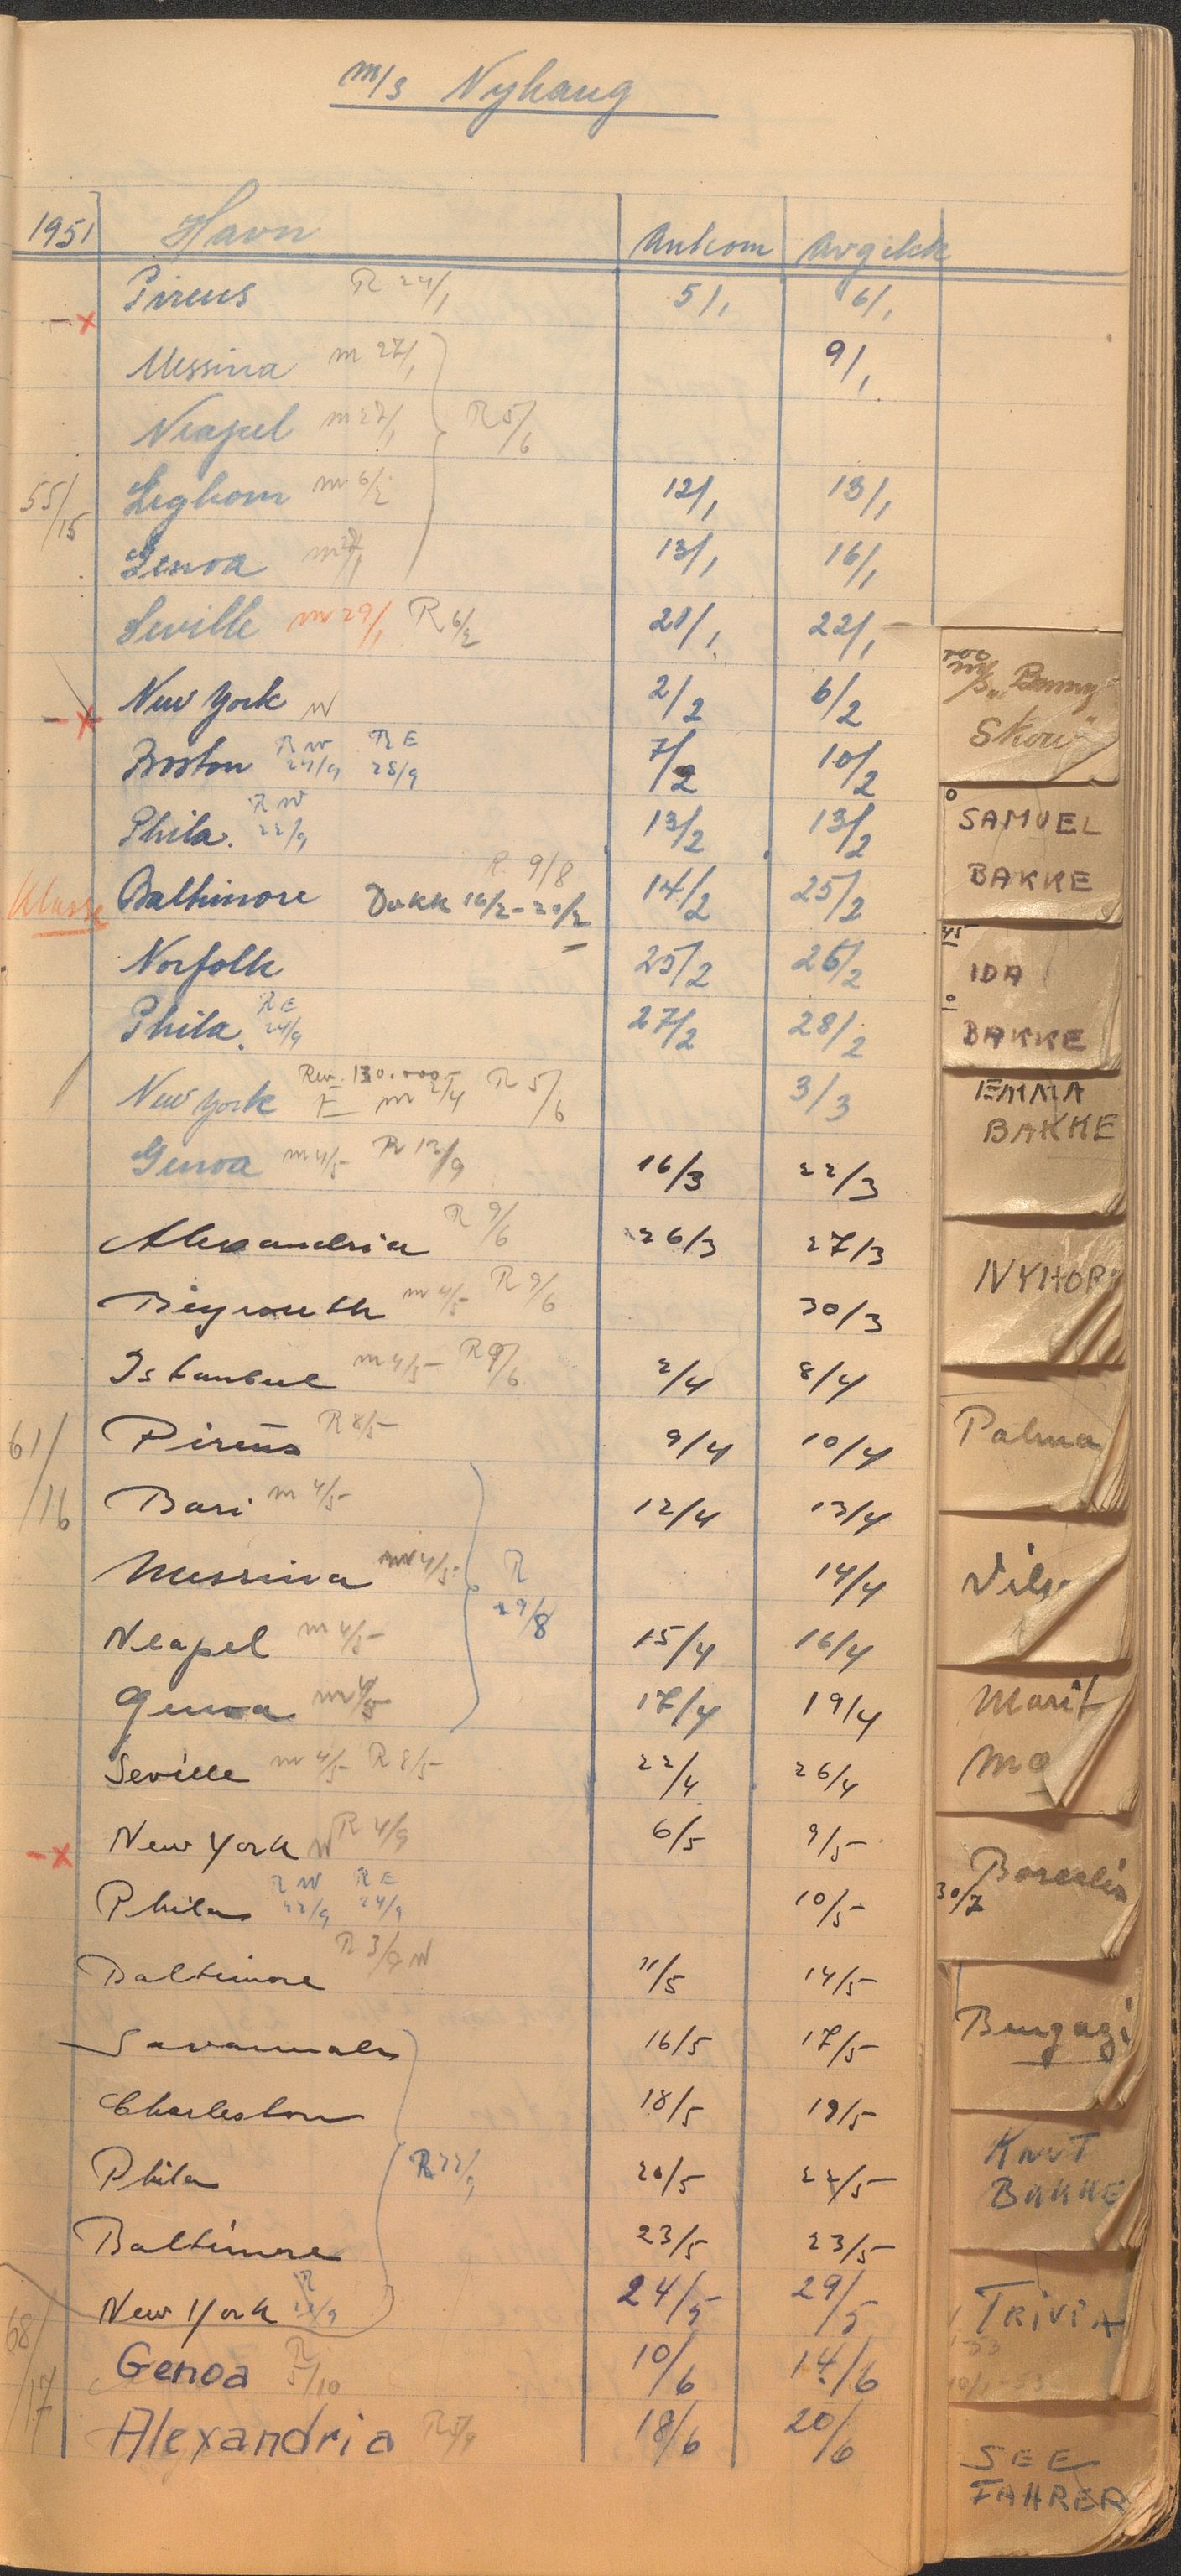 m/s Nyhaug
1951 Havn Ankom Avgikk
Pireus R 24/1 5/1 6/1
Messina m 27/1 9/1
Neapel m 27/1 R 5/6
55/15 Leghorn m 6/2 12/1 13/1
Genoa m 27/1 13/1 16/1
Seville m 29/1 R 6/2 20/1 22/1
New York W 2/2 6/2
Boston R W 24/9 R E 25/9 7/2 10/2
Phila. R W 22/9 13/2 13/2
Klasse Baltimore Dokk 16/2 - 20/2 R 9/8 14/2 25/2
Norfolk 25/2 26/2
Phila. R E 24/9 27/2 28/2
New York Rem. 130.000.- E m 2/4 R 5/6 3/3
Genoa m 4/5 R 13/9 16/3 22/3
Alexandria R 9/6 26/3 27/3
Beyrouth m 4/5 R 9/6 30/3
Istanbul m 4/5 R 9/6 2/4 8/4
61/16 Pireus R 8/5 9/4 10/4
Bari m 4/5 12/4 13/4
Messina m 4/5 R 29/8 14/4
Neapel m 4/5 15/4 16/4
Genoa m 4/5 17/4 19/4
Seville m 4/5 R 8/5 22/4 26/4
New York W R 4/9 6/5 9/5
Phila R W 22/9 R E 24/9 10/5
Baltimore R 3/9 W 11/5 14/5
Savannah 16/5 17/5
Charleston 18/5 19/5
Phila R 22/9 20/5 22/5
Baltimore 23/5 23/5
New York R 24/5 29/5
68/17 Genoa R 5/10 10/6 14/6
Alexandria 18/6 20/6
m/s "Benny Skou"
SAMUEL
BAKKE
IDA
BAKKE
EMMA
BAKKE
NYHOR
Palma
Marit
Bengazi
KNUT
BAKKE
TRIVIA
SEE
FAHRER